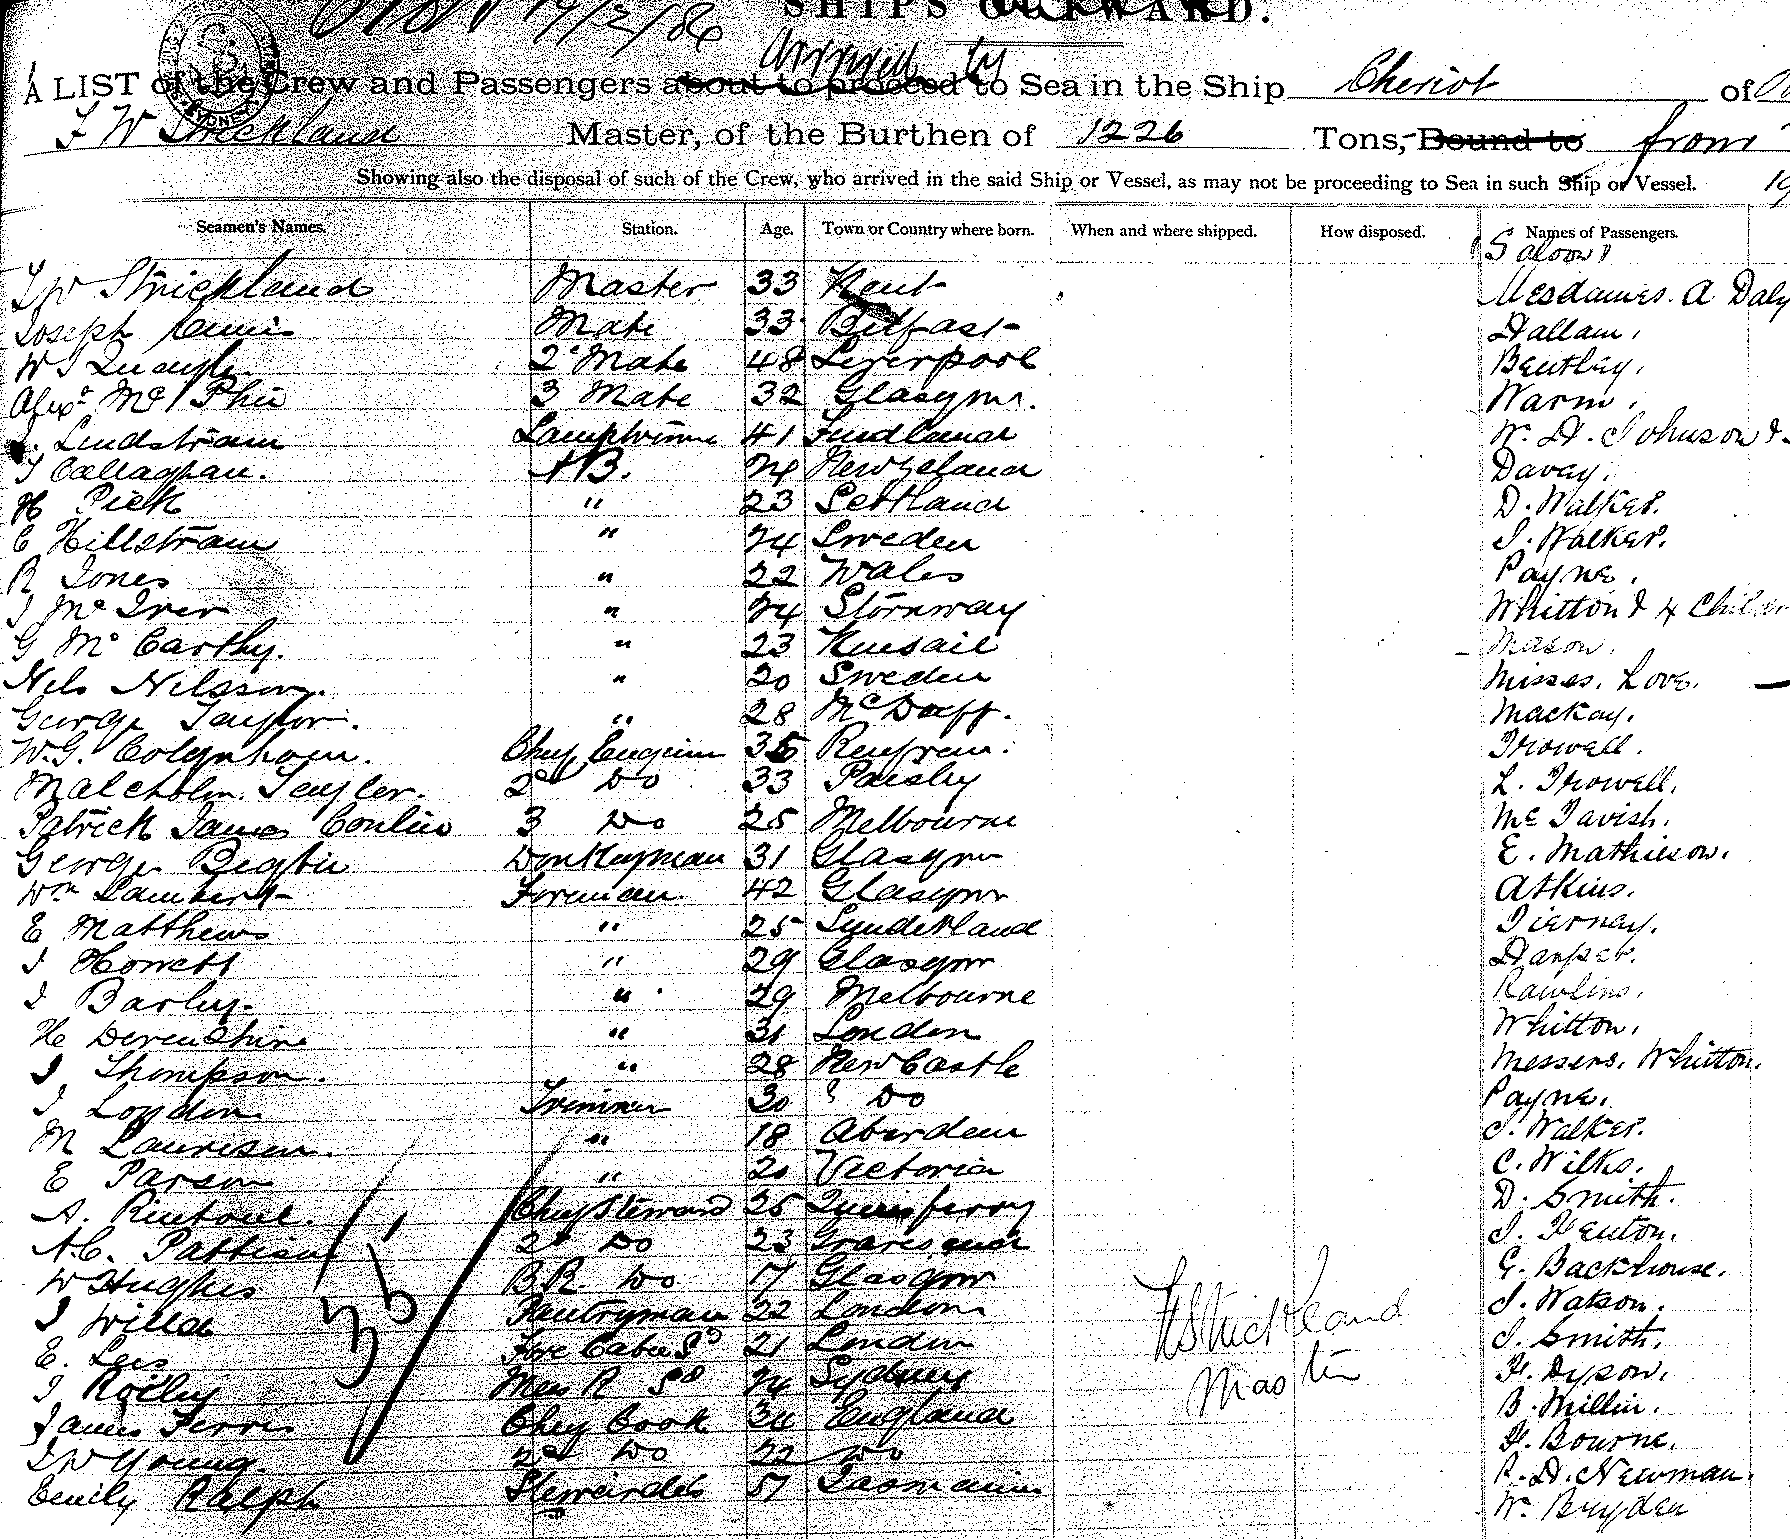 SHIPS OUTWARD.
arrived by
A LIST of the Crew and Passengers about to proceed to Sea in the Ship Cheviot of
F W Strickland Master, of the Burthen of 1226 Tons, Bound to from
Showing also the disposal of such of the Crew, who arrived in the said Ship or Vessel, as may not be proceeding to Sea in such Ship or Vessel.
Seamen's Names. Station. Age. Town or Country where born. When and where shipped. How disposed. Names of Passengers.
Saloon
W Strickland Master 33 Kent Mesdames. A Daly
Joseph Mate 33 Belfast Hallam,
W 2d Mate 48 Liverpool Bentley,
Alexr Mc Phie 3 Mate 32 Glasgow. Warm,
Lindstram Lamptrimmer 41 Findland W. H. Johnson &
Callaghan. A B. 24 New Zeland Davey,
H Pick " 23 Scotland D. Walker.
C Hillstram " 24 Sweden J. Walker.
R Jones " 22 Wales Payne,
J Mc Iver " 24 Stornway Whitton & 4 Children
G Mc Carthy. " 23 Kinsail Mason.
Nils Nilsson. " 20 Sweden Misses. Love.
George Taylor. " 28 McDuff. Mackay.
W.G. Colqnhoun. Chef Engeine 35 Renfrew. Trowell.
Malcholm Taylor. 2d Do 33 Paisley L. Trowell.
Patrick James Conlin 3 Do 25 Melbourne Mc Tavish.
George Begbie Donkeyman 31 Glasgow E. Mathieson.
Wm Lambert Foreman 42 Glasgow Atkins.
E Matthews " 25 Sunderland Tierney.
J Howett " 29 Glasgow Harper.
J Barley. " 29 Melbourne Rawlins.
H Devenshire " 31 London Whitton.
J Thompson. " 28 New Castle Messers. Whitton.
J London Trimmer 30 " Do Payne.
M Laurisen. " 18 Aberdeen J. Walker.
E Parson " 20 Victoria C. Wilks.
A. Rintoul. Chef Steward 25 Quinsferry D. Smith.
A.C. Pattison 2d Do 23 Gravesend J. Fenton.
W Hughes B.R. Do 17 Glasgow G. Backhouse.
J Willa Pantryman 22 London J. Watson.
E. Lees Fore Cabin Sd 21 London J. Smith.
J Reiley Mess R Sd 24 Sydney F. Dyson.
James Ferris Chef Cook 34 England B. Millin.
J W Young. 2d Do 22 Do F. Bourne.
Emily Ralph Stewardes 51 Tasmania R. H. Newman.
W. Bryden
35
FW Strickland
Master